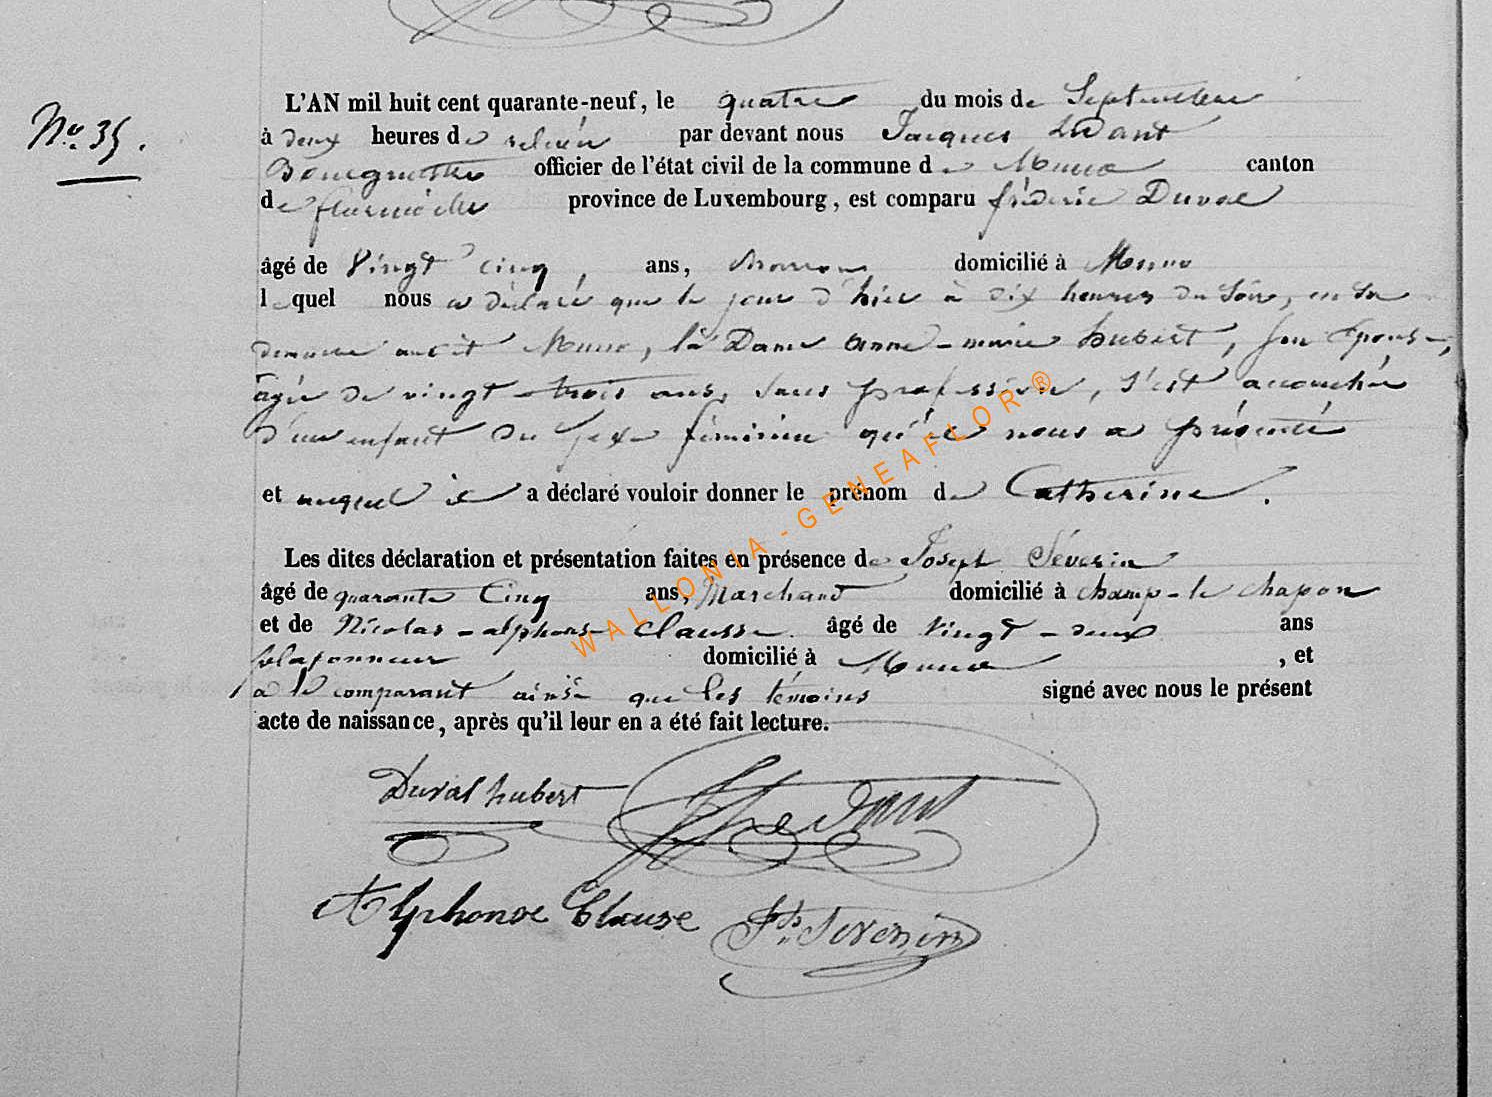 No. 35.
L'AN mil huit cent quarante-neuf, le quatre du mois de Septembre
à deux heures de relevée par devant nous Jacques Ledant
Bourgmestre officier de l'état civil de la commune de Muno canton
de florenville province de Luxembourg, est comparu frédéric Duval
âgé de vingt cinq, ans, domicilié à Muno
lequel nous a déclaré que le jour d'hier à dix heures du soir, en sa
demeure audit Muno, la Dame anne-marie hubert, son épouse,
âgée de vingt-trois ans, sans profession, s'est accouchée
d'un enfant du sexe féminin qu'il nous a présenté
et auquel il a déclaré vouloir donner le prénom de Catherine.
Les dites déclaration et présentation faites en présence de Joseph Séverin
âgé de quarante Cinq ans, Marchand domicilié à champ-le chapon
et de Nicolas-alphonse Clausse âgé de vingt-deux ans
domicilié à Muno, et
a le comparant ainsi que les témoins signé avec nous le présent
acte de naissance, après qu'il leur en a été fait lecture.
Duval hubert Ledant
Alphonse Clause Jph Severin
WALLONIA-GENEAFLOR®